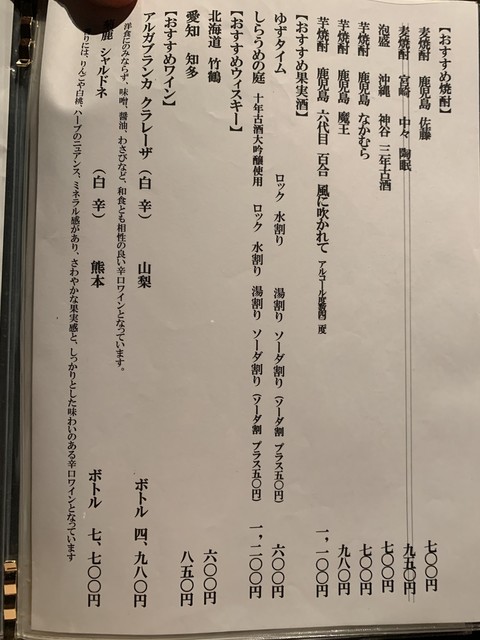 【おすすめ焼酎】
麦焼酎 鹿児島 佐藤 七〇〇円
麦焼酎 宮崎 中々 陶眠 九五〇円
泡盛 沖縄 神谷 三年古酒 七〇〇円
芋焼酎 鹿児島 なかむら 七〇〇円
芋焼酎 鹿児島 魔王 九八〇円
芋焼酎 鹿児島 六代目 百合 風に吹かれて アルコール度数四二度 一、一〇〇円
【おすすめ果実酒】
ゆずタイム ロック 水割り 湯割り ソーダ割り (ソーダ割 プラス五〇円) 六〇〇円
しらうめの庭 十年古酒大吟醸使用 ロック 水割り 湯割り ソーダ割り (ソーダ割 プラス五〇円) 一、二〇〇円
【おすすめウィスキー】
北海道 竹鶴 六〇〇円
愛知 知多 八五〇円
【おすすめワイン】
アルガブランカ クラレーザ (白 辛) 山梨 ボトル 四、九八〇円
洋食にのみならず、味噌、醤油、わさびなど、和食とも相性の良い辛口ワインとなっています。
鹿 シャルドネ (白 辛) 熊本 ボトル 七、七〇〇円
りには、りんごや白桃、ハーブのニュアンス、ミネラル感があり、さわやかな果実感と、しっかりとした味わいのある辛口ワインとなっています